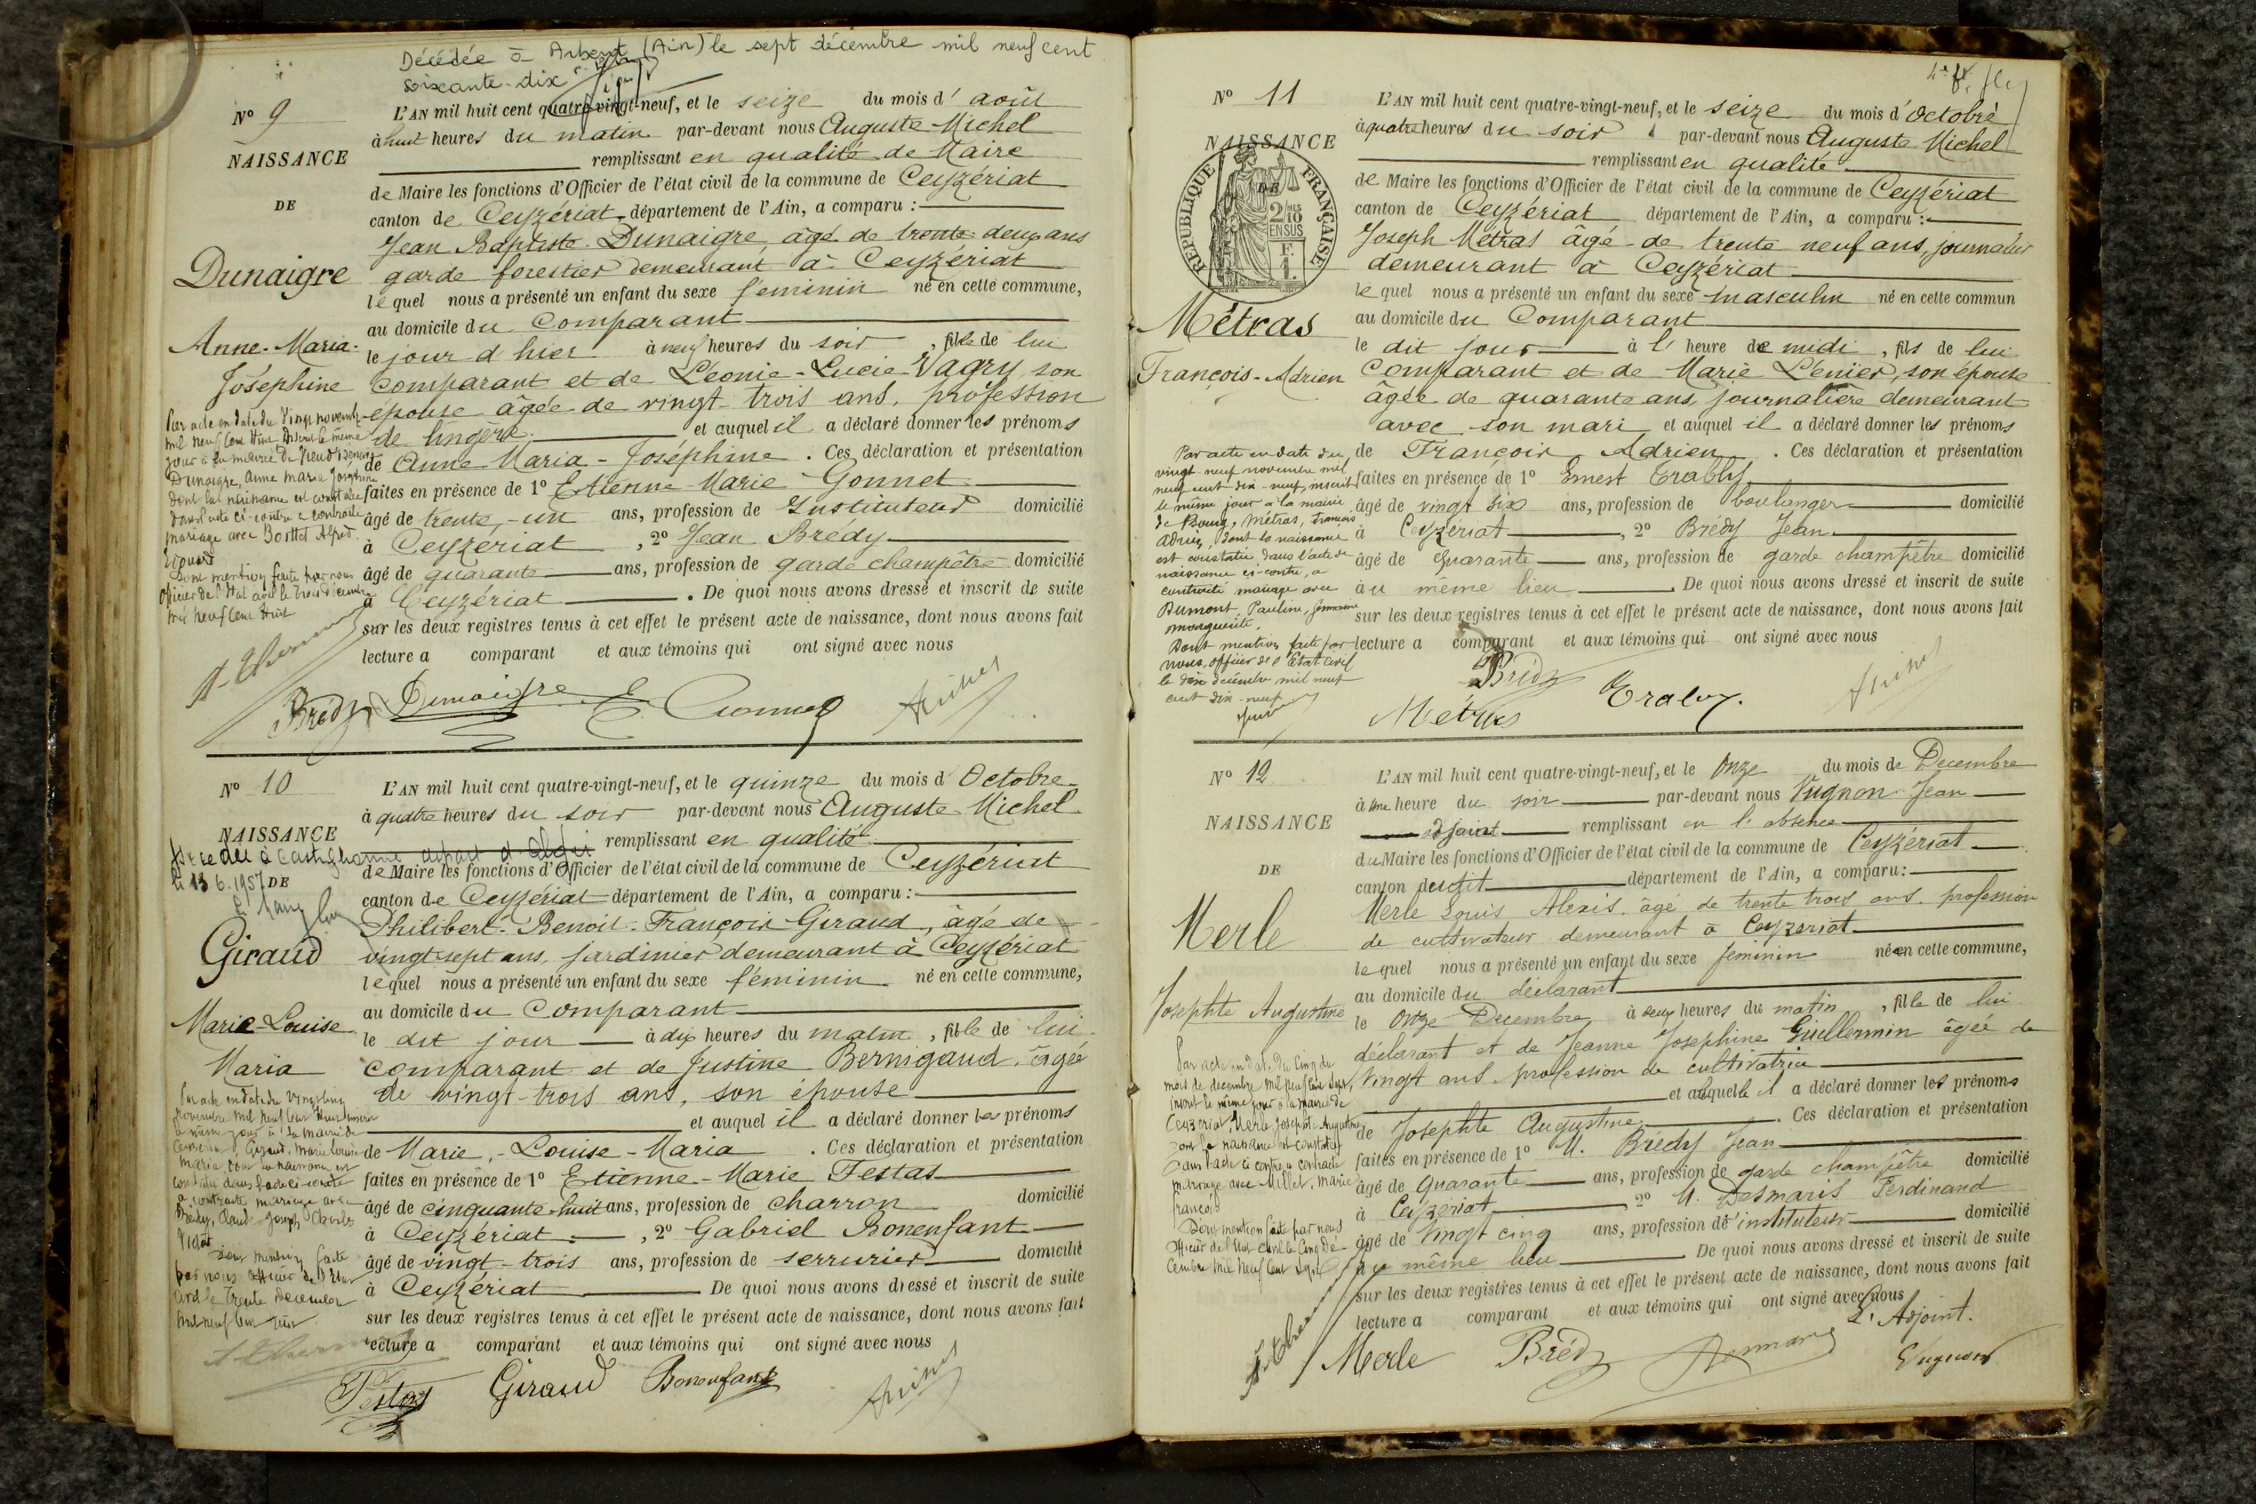 Décédée à Arbent (Ain) le sept décembre mil neuf cent
soixante-dix
N° 9
NAISSANCE
DE
Dunaigre
Anne-Maria-
Joséphine
L'AN mil huit cent quatre-vingt-neuf, et le seize du mois d'août
à huit heures du matin par-devant nous Auguste Michel
remplissant en qualité de Maire
de Maire les fonctions d'Officier de l'état civil de la commune de Ceyzériat
canton de Ceyzériat département de l'Ain, a comparu :
Jean Baptiste Dunaigre, âgé de trente-deux ans
garde forestier demeurant à Ceyzériat
lequel nous a présenté un enfant du sexe féminin né en cette commune,
au domicile du Comparant
le jour d'hier à neuf heures du soir, fille de lui
comparant et de Leonie-Lucie Vagry son
épouse âgée de vingt-trois ans, profession
de lingère et auquel il a déclaré donner les prénoms
de Anne Maria-Joséphine. Ces déclaration et présentation
faites en présence de 1° Etienne Marie Gonnet
âgé de trente-un ans, profession de Instituteur domicilié
à Ceyzériat, 2° Jean Brédy
âgé de quarante ans, profession de garde champêtre domicilié
à Ceyzériat. De quoi nous avons dressé et inscrit de suite
sur les deux registres tenus à cet effet le présent acte de naissance, dont nous avons fait
lecture a comparant et aux témoins qui ont signé avec nous
Par acte en date du vingt novembre
mil neuf cent huit inscrit le même
jour à la mairie de
Dunaigre, Anne Maria Joséphine
dont la naissance est constatée
dans l'acte ci-contre a contracté
mariage avec Bottet Alfred
Edouard
Dont mention faite par nous
Officier de l'Etat civil le trois décembre
mil neuf cent huit
Brédy Dunaigre E Gonnet
N° 10
NAISSANCE
DE
Décédée à Castiglione départ d'Alger
le 13.6.1957
Giraud
Marie-Louise
Maria
L'AN mil huit cent quatre-vingt-neuf, et le quinze du mois d'Octobre
à quatre heures du soir par-devant nous Auguste Michel
remplissant en qualité
de Maire les fonctions d'Officier de l'état civil de la commune de Ceyzériat
canton de Ceyzériat département de l'Ain, a comparu :
Philibert-Benoit-François Giraud, âgé de
vingt-sept ans, jardinier demeurant à Ceyzériat
lequel nous a présenté un enfant du sexe féminin né en cette commune,
au domicile du Comparant
le dit jour à dix heures du matin, fille de lui
comparant et de Justine Bernigaud, âgée
de vingt-trois ans, son épouse
et auquel il a déclaré donner les prénoms
de Marie,-Louise-Maria. Ces déclaration et présentation
faites en présence de 1° Etienne-Marie Testas
âgé de cinquante-huit ans, profession de charron domicilié
à Ceyzériat, 2° Gabriel Bonenfant
âgé de vingt-trois ans, profession de serrurier domicilié
à Ceyzériat De quoi nous avons dressé et inscrit de suite
sur les deux registres tenus à cet effet le présent acte de naissance, dont nous avons fait
lecture a comparant et aux témoins qui ont signé avec nous
Par acte en date du vingt cinq
novembre mil neuf cent huit inscrit
le même jour à la mairie de
Giraud, Marie Louise
Maria, dont la naissance est
constatée dans l'acte ci-contre
a contracté mariage avec
Brédy, Claude Joseph Charles
Dont mention faite
par nous Officier de l'Etat
civil le trente décembre
mil neuf cent huit
Testas Giraud Bonenfant
N° 11
NAISSANCE
DE
RÉPUBLIQUE FRANÇAISE
2/10 EN SUS
F. 1.
Métras
François-Adrien
L'AN mil huit cent quatre-vingt-neuf, et le seize du mois d'Octobre
à quatre heures du soir par-devant nous Auguste Michel
remplissant en qualité
de Maire les fonctions d'Officier de l'état civil de la commune de Ceyzériat
canton de Ceyzériat département de l'Ain, a comparu :
Joseph Métras âgé de trente neuf ans, journalier
demeurant à Ceyzériat
lequel nous a présenté un enfant du sexe masculin né en cette commun
au domicile du Comparant
le dit jour à l' heure de midi, fils de lui
Comparant et de Marie Lenier, son épouse
âgée de quarante ans, journalière demeurant
avec son mari et auquel il a déclaré donner les prénoms
de François Adrien. Ces déclaration et présentation
faites en présence de 1° Ernest Trably
âgé de vingt six ans, profession de boulanger domicilié
à Ceyzériat, 2° Brédy Jean
âgé de Quarante ans, profession de garde champêtre domicilié
au même lieu. De quoi nous avons dressé et inscrit de suite
sur les deux registres tenus à cet effet le présent acte de naissance, dont nous avons fait
lecture a comparant et aux témoins qui ont signé avec nous
Par acte en date du
vingt-neuf novembre mil
neuf cent dix-neuf, inscrit
le même jour à la mairie
de Bourg, Métras, François
Adrien, dont la naissance
est constatée dans l'acte de
naissance ci-contre, a
contracté mariage avec
Dumont, Pauline, Jeanne
Marguerite.
Dont mention faite par
nous, officier de l'Etat civil
le dix décembre mil neuf
cent dix-neuf
Brédy
Métras Trably
N° 12
NAISSANCE
DE
Merle
Josephte Augustine
L'AN mil huit cent quatre-vingt-neuf, et le Onze du mois de Decembre
à une heure du soir par-devant nous Vugnon Jean
adjoint remplissant en l'absence
du Maire les fonctions d'Officier de l'état civil de la commune de Ceyzériat
canton dudit département de l'Ain, a comparu :
Merle Louis Alexis, âgé de trente trois ans, profession
de cultivateur demeurant à Ceyzériat
lequel nous a présenté un enfant du sexe féminin né en cette commune,
au domicile du déclarant
le Onze Decembre à deux heures du matin, fille de lui
déclarant et de Jeanne Josephine Guillermin âgée de
Vingt ans, profession de cultivatrice
et auquel il a déclaré donner les prénoms
de Josephte Augustine. Ces déclaration et présentation
faites en présence de 1° M. Brédy Jean
âgé de Quarante ans, profession de garde champêtre domicilié
à Ceyzériat, 2° M. Desmaris Ferdinand
âgé de Vingt cinq ans, profession d'instituteur domicilié
au même lieu De quoi nous avons dressé et inscrit de suite
sur les deux registres tenus à cet effet le présent acte de naissance, dont nous avons fait
lecture a comparant et aux témoins qui ont signé avec nous
L'Adjoint.
Par acte en date du Cinq du
mois de décembre mil neuf cent sept,
inscrit le même jour à la mairie de
Ceyzériat, Merle Josephte Augustine
dont la naissance est constatée
dans l'acte ci contre a contracté
mariage avec Millet, Marie
françois
Dont mention faite par nous
Officier de l'Etat civil le Cinq dé-
cembre mil neuf cent sept
Merle Brédy Desmaris Vugnon